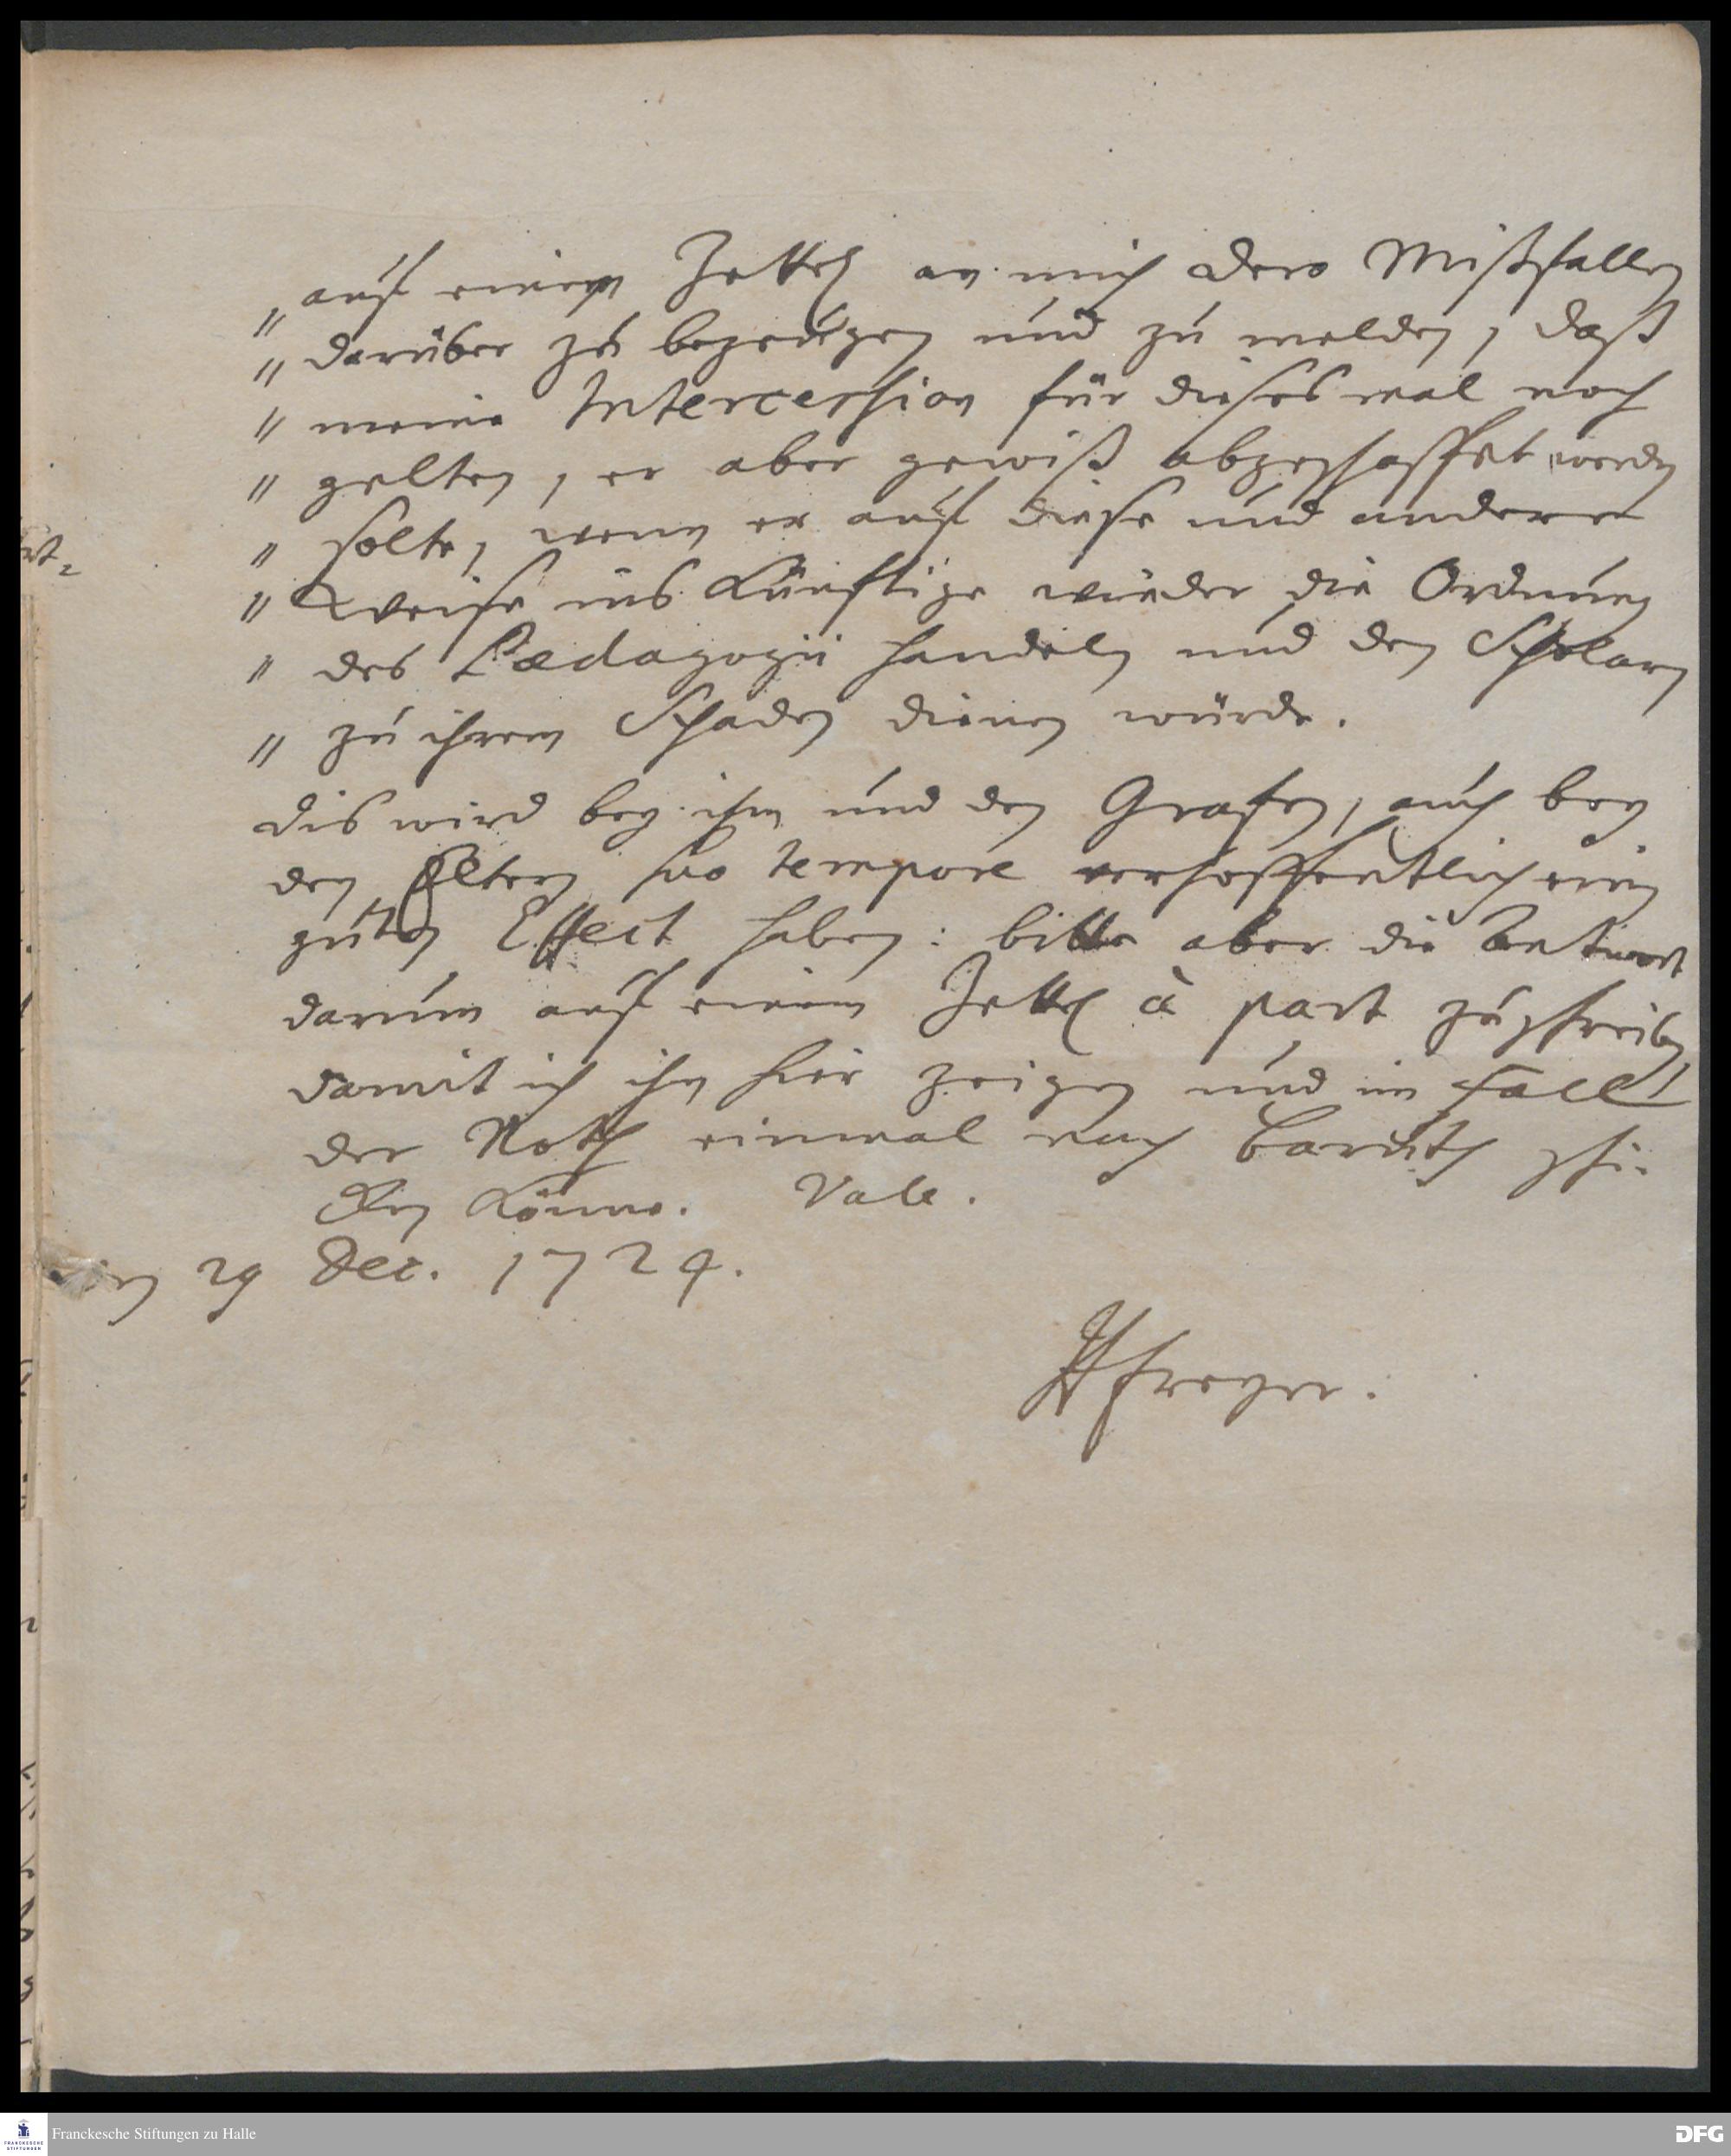 „ auf einem Zettel an mich dero Mißfallen
„ darüber zu bezeugen und zu melden, daß
„ meine Intercession für dieses mal noch
„ gelten, er aber gewiß abgeschaffet werden
„ solte, wenn er auf diese und andere
„ Weise ins Künftige wieder die Ordnung
„ des Pædagogii handeln und den Scholaren
„ zu ihrem Schaden dienen würde.
dis wird bey ihm und den Grafen, auch bey
den Eltern suo tempore verhoffentlich einen
guten Effect haben: bitte aber die Antwort
darum auf einem Zettel à part zu schreiben,
damit ich ihn hier zeigen und im Fall
der Noth einmal nach Baruth schi-
cken könne. Vale.
den 29 Dec. 1724.
HFreyer.
Franckesche Stiftungen zu Halle
FRANCKESCHE
STIFTUNGEN
DFG